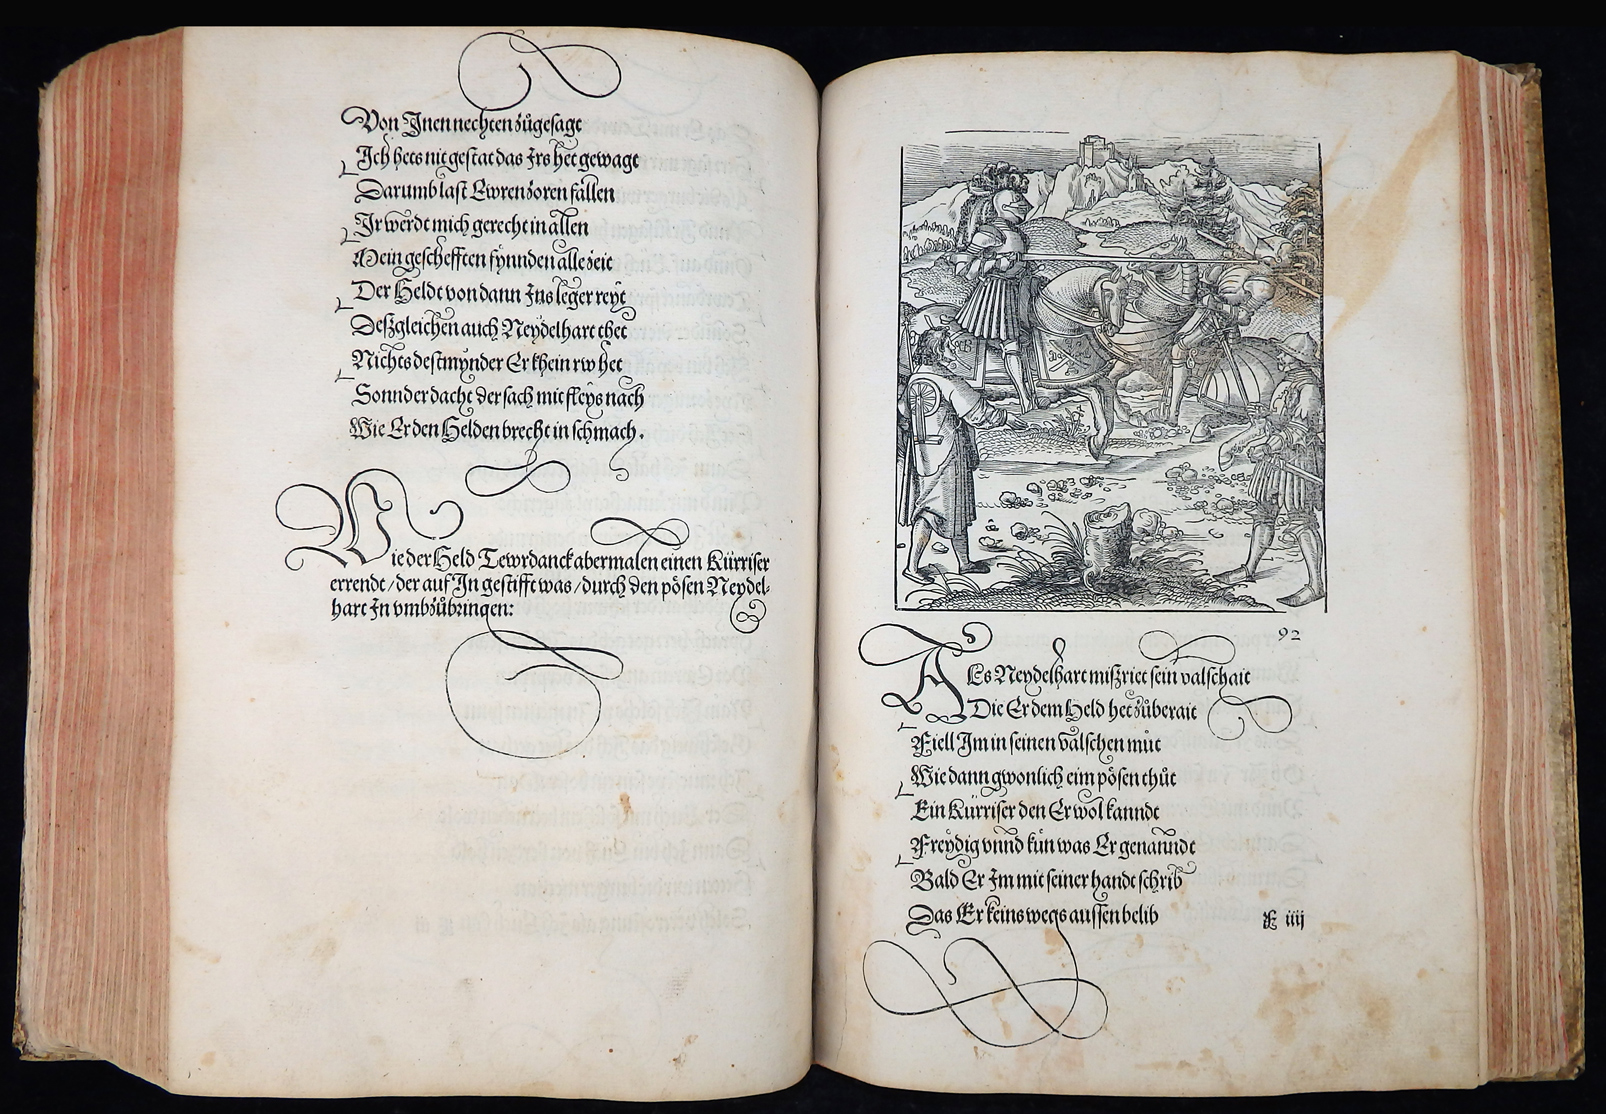 Von Jnen nechten zůgesagt
Jch hets nit gestat das Jrs het gewagt
Darumb last Ewren zoren fallen
Jr werdt mich gerecht in allen
Mein geschefften fynnden alle zeit
Der Heldt von dann Jns leger reyt
Deßgleichen auch Neydelhart thet
Nichts destmynder Er khein rw het
Sonnder dacht der sach mit fleys nach
Wie Er den Helden brecht in schmach.
Wie der Held Tewrdanck abermalen einen Kürriser
errendt / der auf Jn gestifft was / durch den pösen Neydel-
hart Jn vmbzůbringen:
92
ALs Neydelhart mißriet sein valschait
Die Er dem Held het zůberait
Fiell Jm in seinen valschen můt
Wie dann gwonlich eim pösen thůt
Ein Kürriser den Er wol kanndt
Freydig vnnd kün was Er genanndt
Bald Er Jm mit seiner handt schrib
Das Er keins wegs aussen belib
iiij